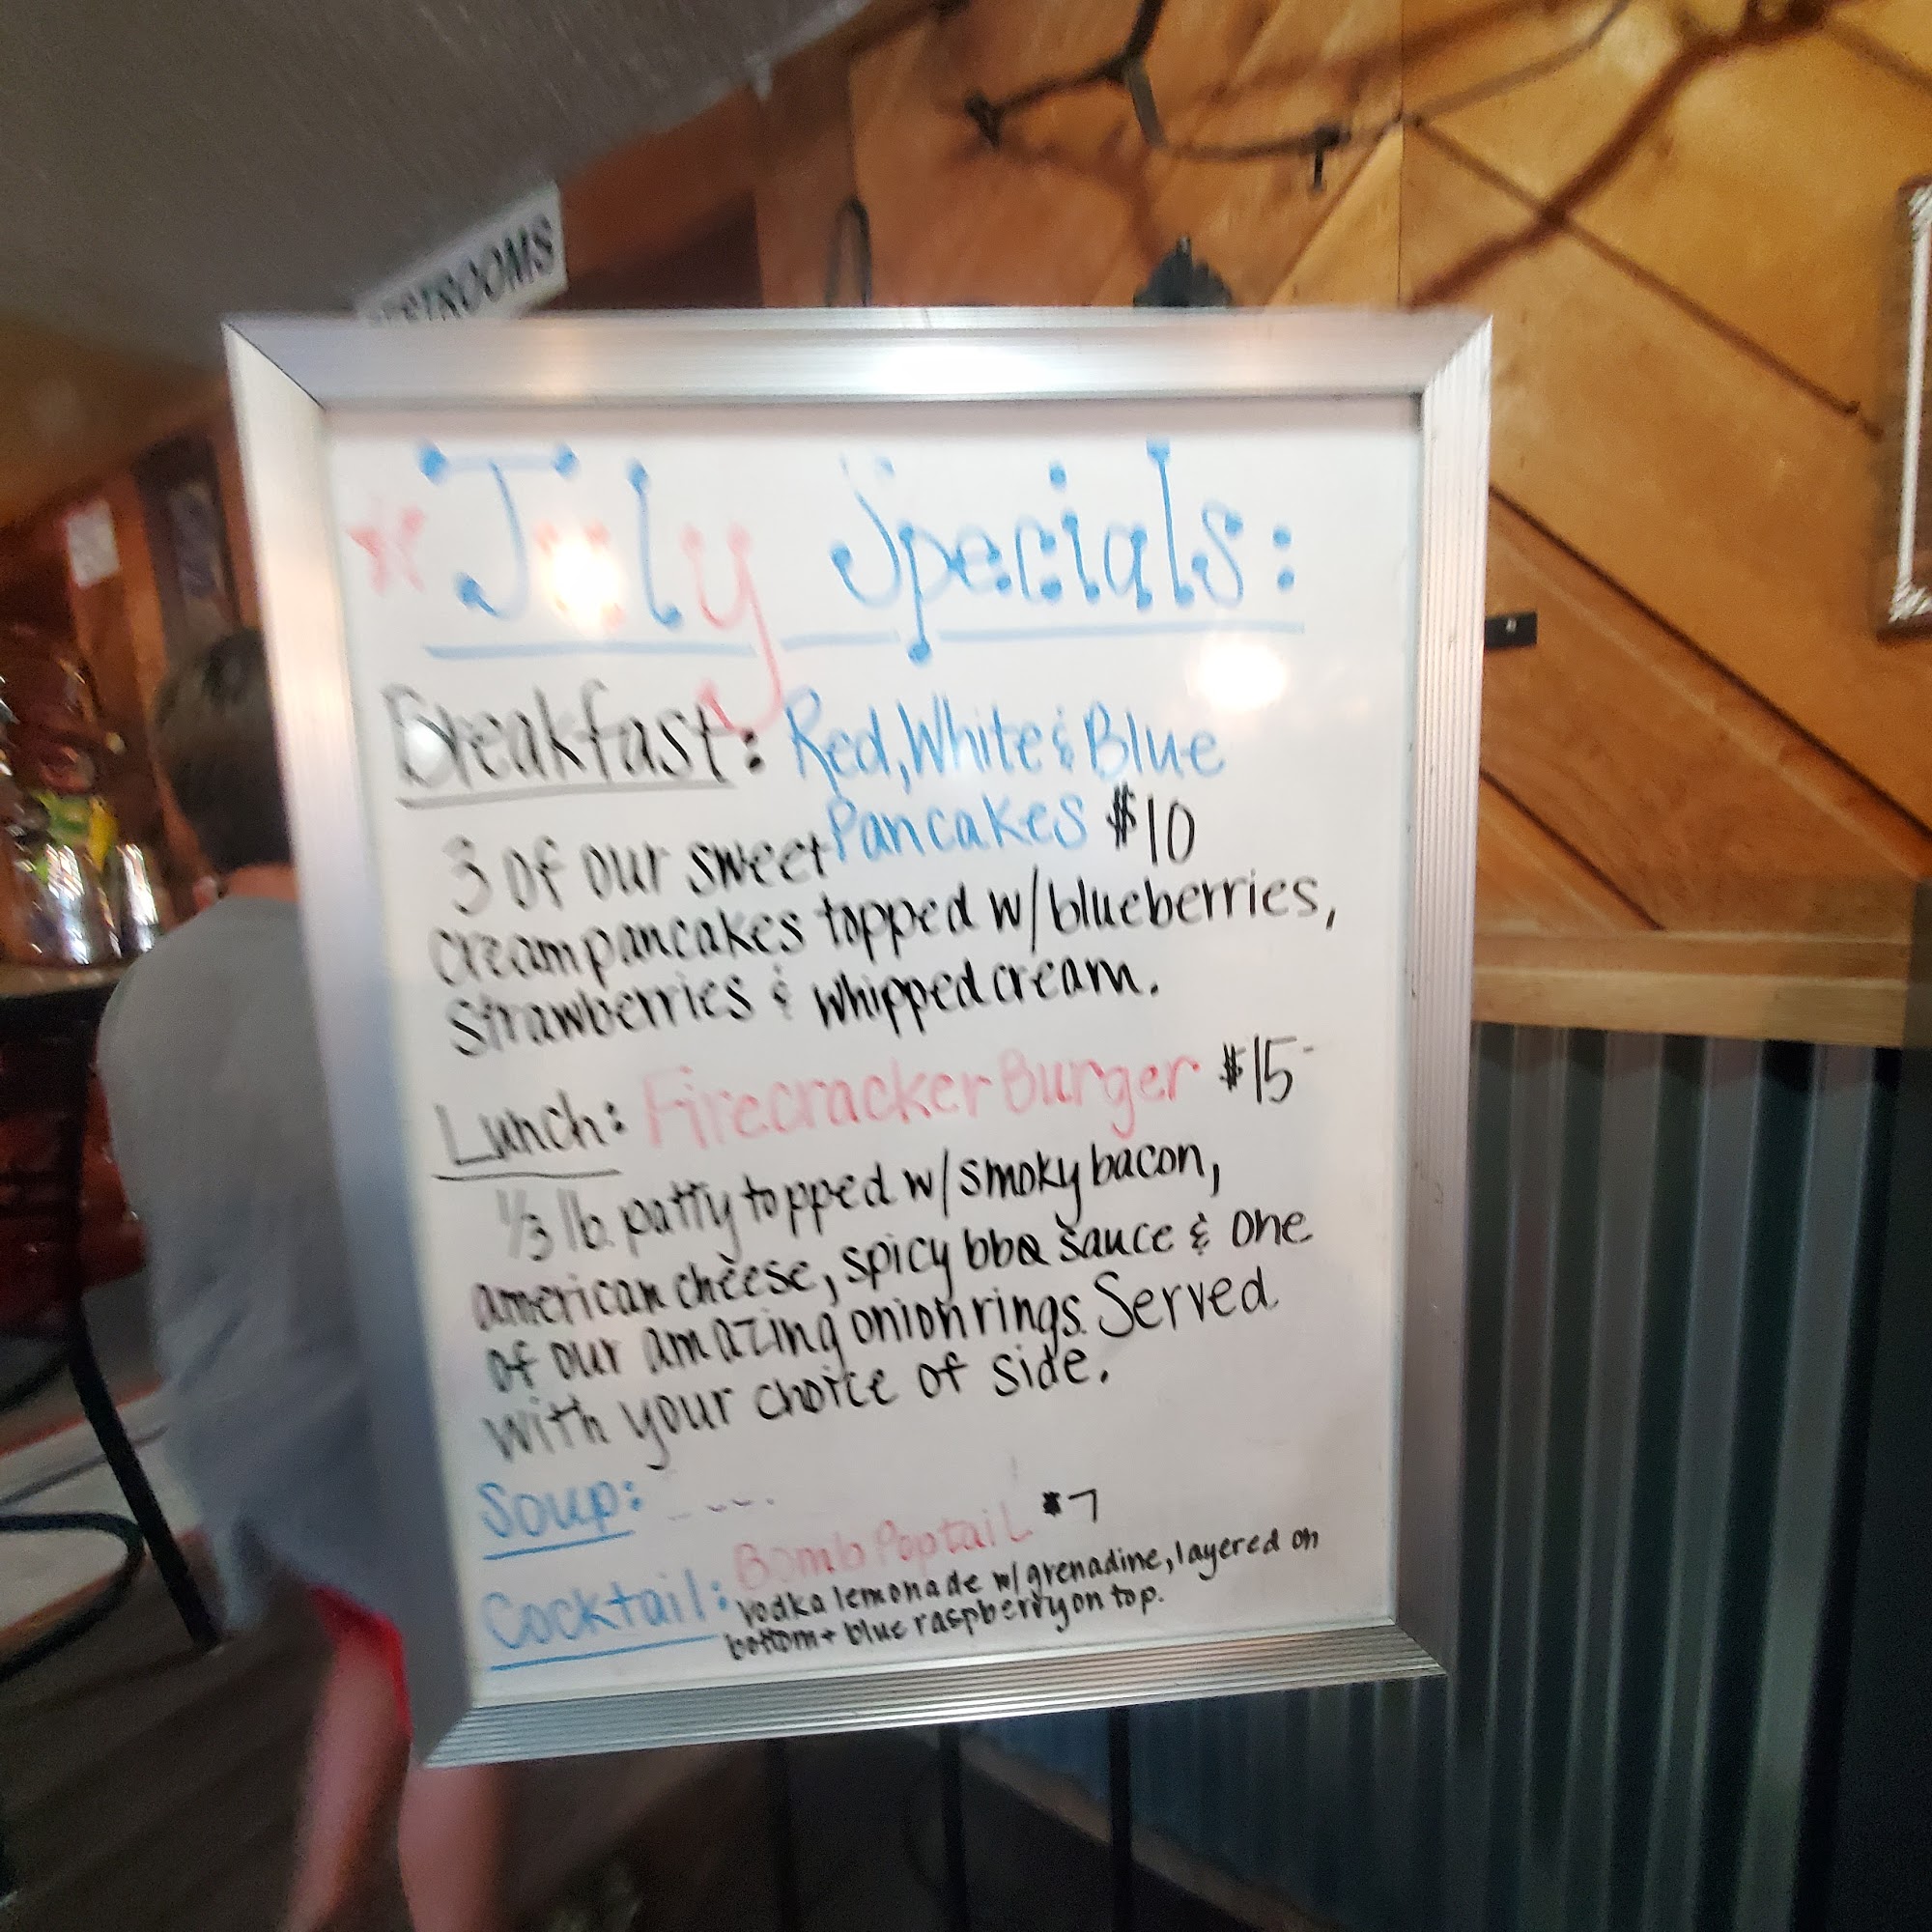 RESTROOMS
July Specials:
Breakfast: Red, White & Blue
Pancakes $10
3 of our sweet
cream pancakes topped w/ blueberries,
Strawberries & whipped cream.
Lunch: Firecracker Burger $15
1/3 lb. patty topped w/ smoky bacon,
american cheese, spicy bbq sauce & one
of our amazing onion rings. Served
with your choice of side.
Soup:
Cocktail: Bomb Poptail $7
vodka lemonade w/ grenadine, layered on
bottom + blue raspberry on top.